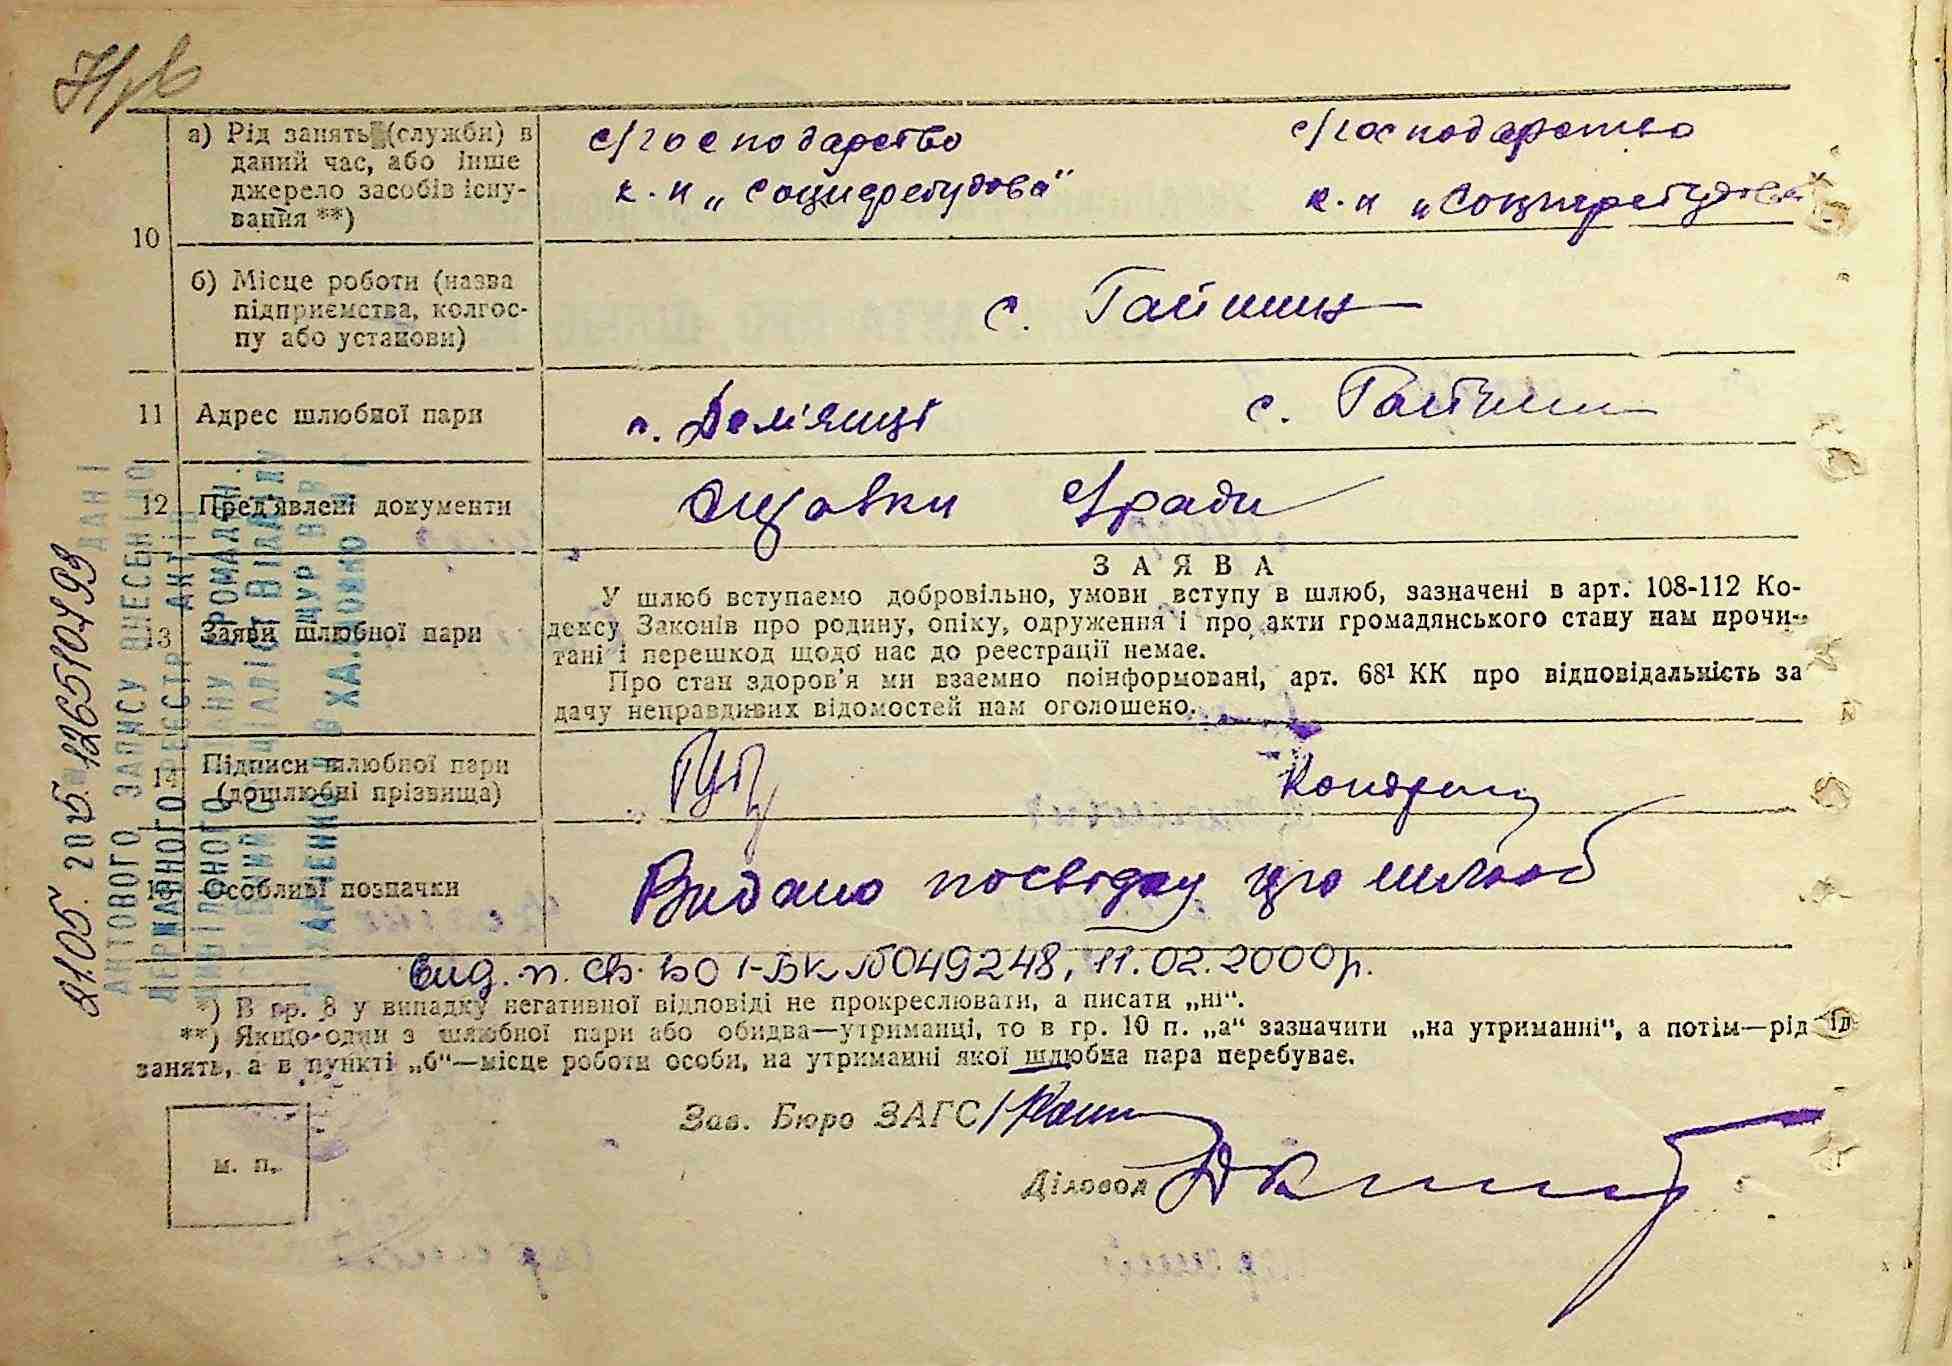 10
а) Рід занять (служби) в
даний час, або інше
джерело засобів існу-
вання **)
с/господарство
к.п „Соцперебудова"
с/господарство
к.п „Соцперебудова
б) Місце роботи (назва
підприємства, колгос-
пу або установи)
с.
11 Адрес шлюбної пари
с. Дем'янці с.
12 Пред'явлені документи
с/ради
13 Заяви шлюбної пари
ЗАЯВА
У шлюб вступаємо добровільно, умови вступу в шлюб, зазначені в арт. 108-112 Ко-
дексу Законів про родину, опіку, одруження і про акти громадянського стану нам прочи-
тані і перешкод щодо нас до реєстрації немає.
Про стан здоров'я ми взаємно поінформовані, арт. 68¹ КК про відповідальність за
дачу неправдивих відомостей нам оголошено.
14 Підписи шлюбної пари
(дошлюбні прізвища)
15 Особливі позначки
Видано посвідку про шлюб
вид. п. св. во І-БК №049248, 11.02.2000р.
*) В гр. 8 у випадку негативної відповіді не прокреслювати, а писати „ні".
**) Якщо один з шлюбної пари або обидва—утриманці, то в гр. 10 п. „а" зазначити „на утриманні", а потім—рід
занять, а в пункті „б"—місце роботи особи, на утриманні якої шлюбна пара перебуває.
м. п.
Зав. Бюро ЗАГС
Діловод
ДАНІ
АКТОВОГО ЗАПИСУ ВНЕСЕНІ ДО
ДЕРЖАВНОГО РЕЄСТР АКТІВ
ЦИВІЛЬНОГО СТАНУ ГРОМАДЯН